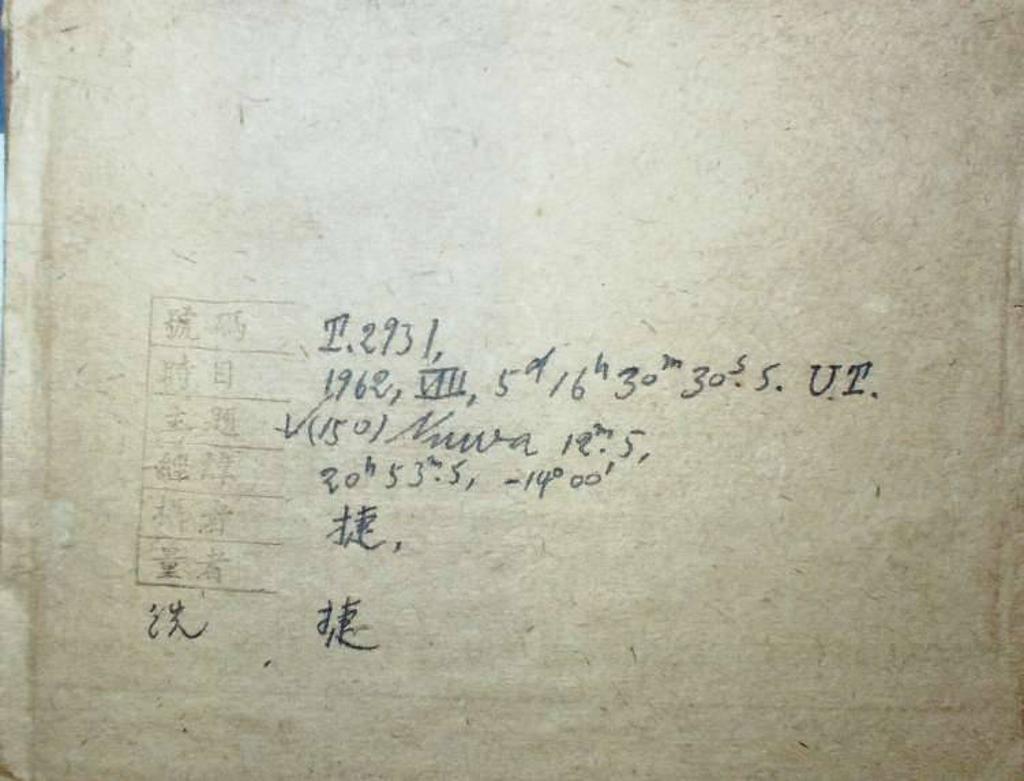 號碼 T.2931,
時日 1962, VIII, 5ᵈ 16ʰ 30ᵐ 30ˢ.5. U.T.
主題 √(150) Nuwa 12ᵐ.5,
經緯 20ʰ 53ᵐ.5, -14°00'
攝者 捷,
量者
洗 捷